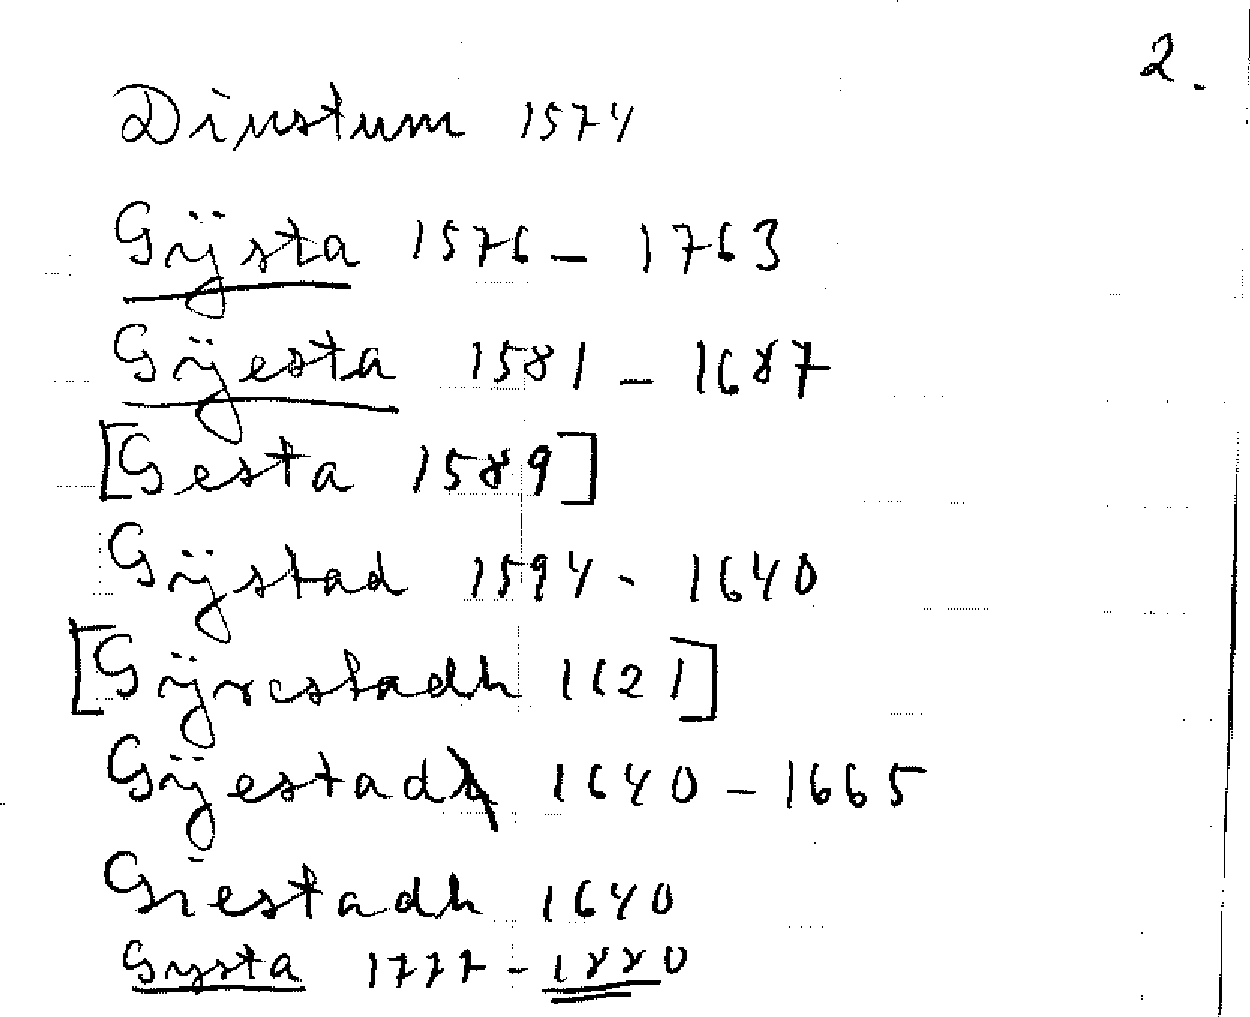 2.
Dijustum 1574
Gÿsta 1576 – 1763
Gÿesta 1581 – 1687
[Gesta 1589]
Gÿstad 1594 - 1640
[Gÿrestadh 1621]
Gÿestad 1640 – 1665
Giestadh 1640
Gysta 1777 - 1880